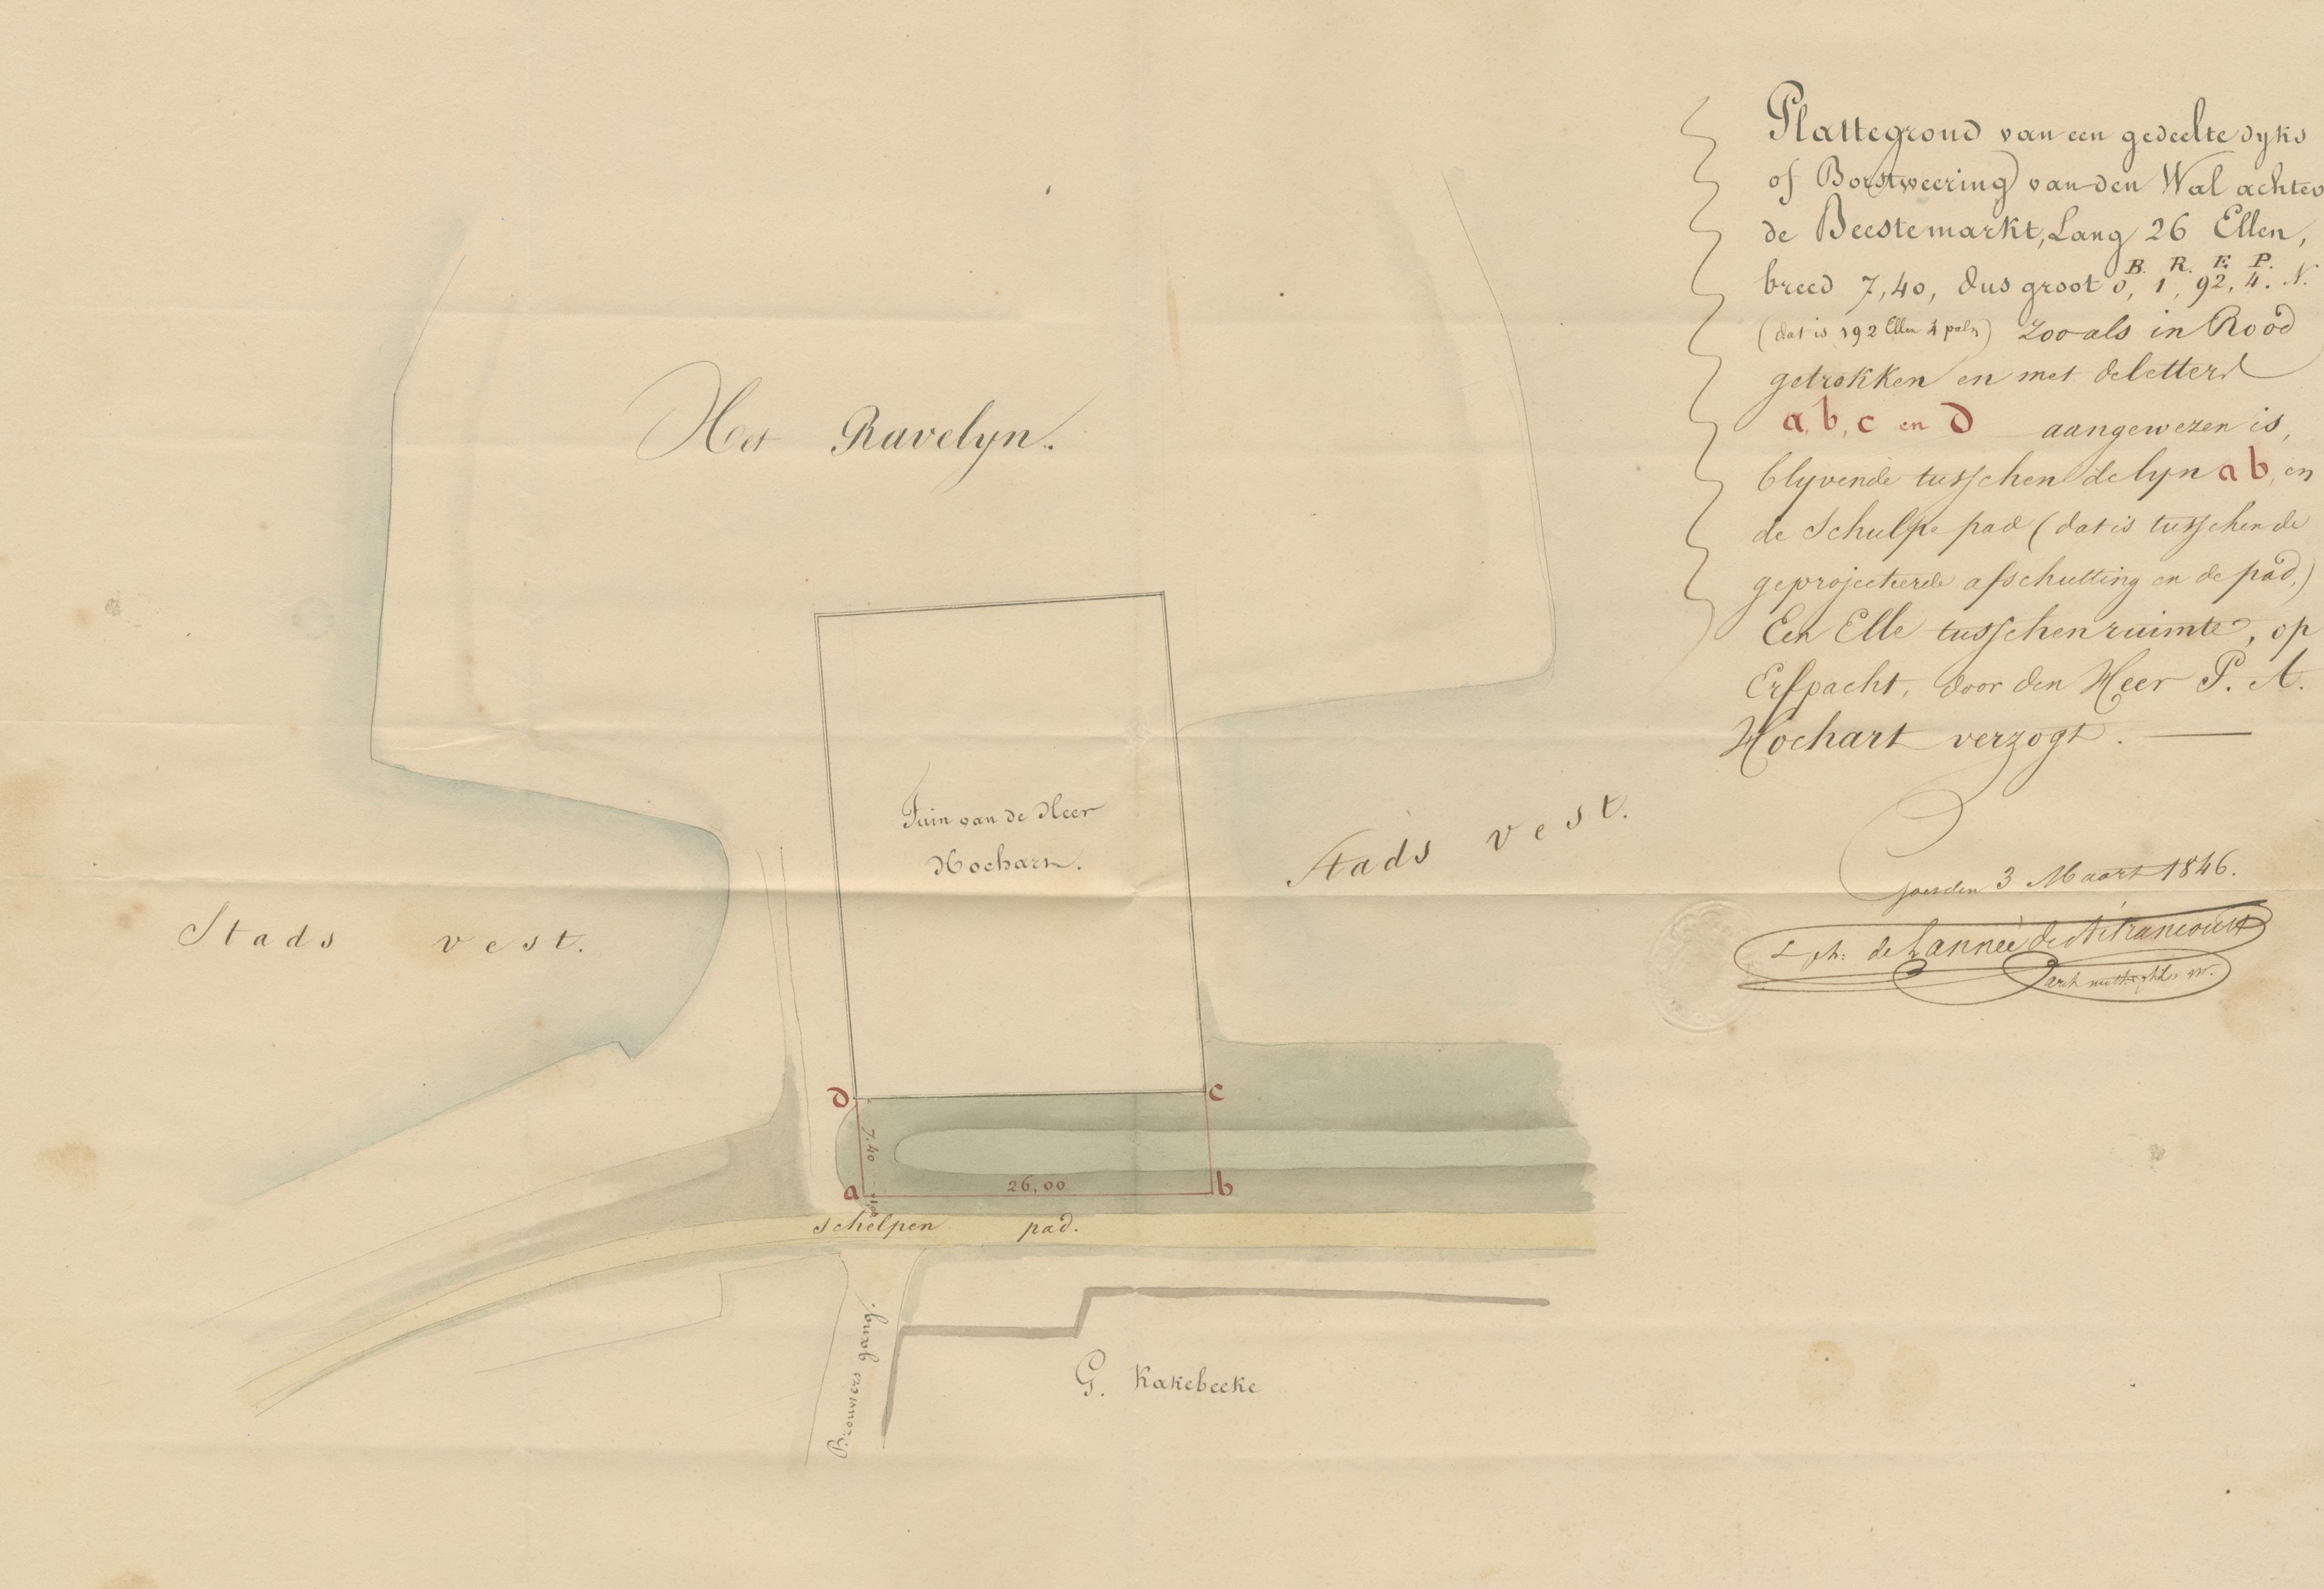 Plattegrond van een gedeelte dyks
of Borstweering van den Wal achter
de Beestemarkt, Lang 26 Ellen,
B. R. E. P.
breed 7,40, dus groot 0, 1, 92, 4. N.
(dat is 192 Ellen 4 palm) Zooals in Rood
getrokken en met de letters
a, b, c en d aangewezen is,
blyvende tusschen de lyn a b, en
de Schulpe pad (dat is tusschen de
geprojecteerde afschutting en de pad,)
Een Elle tusschenruimte, op
Erfpacht, door den Heer P. A.
Hochart verzogt.
Goes den 3 Maart 1846.
de Lannée de Betrancourt
Het Ravelyn.
Tuin van de Heer
Hochart.
Stads vest.
Stads vest.
d
c
7.40
a
26,00
b
schelpen pad.
Brouwers gang.
G. Kakebeeke